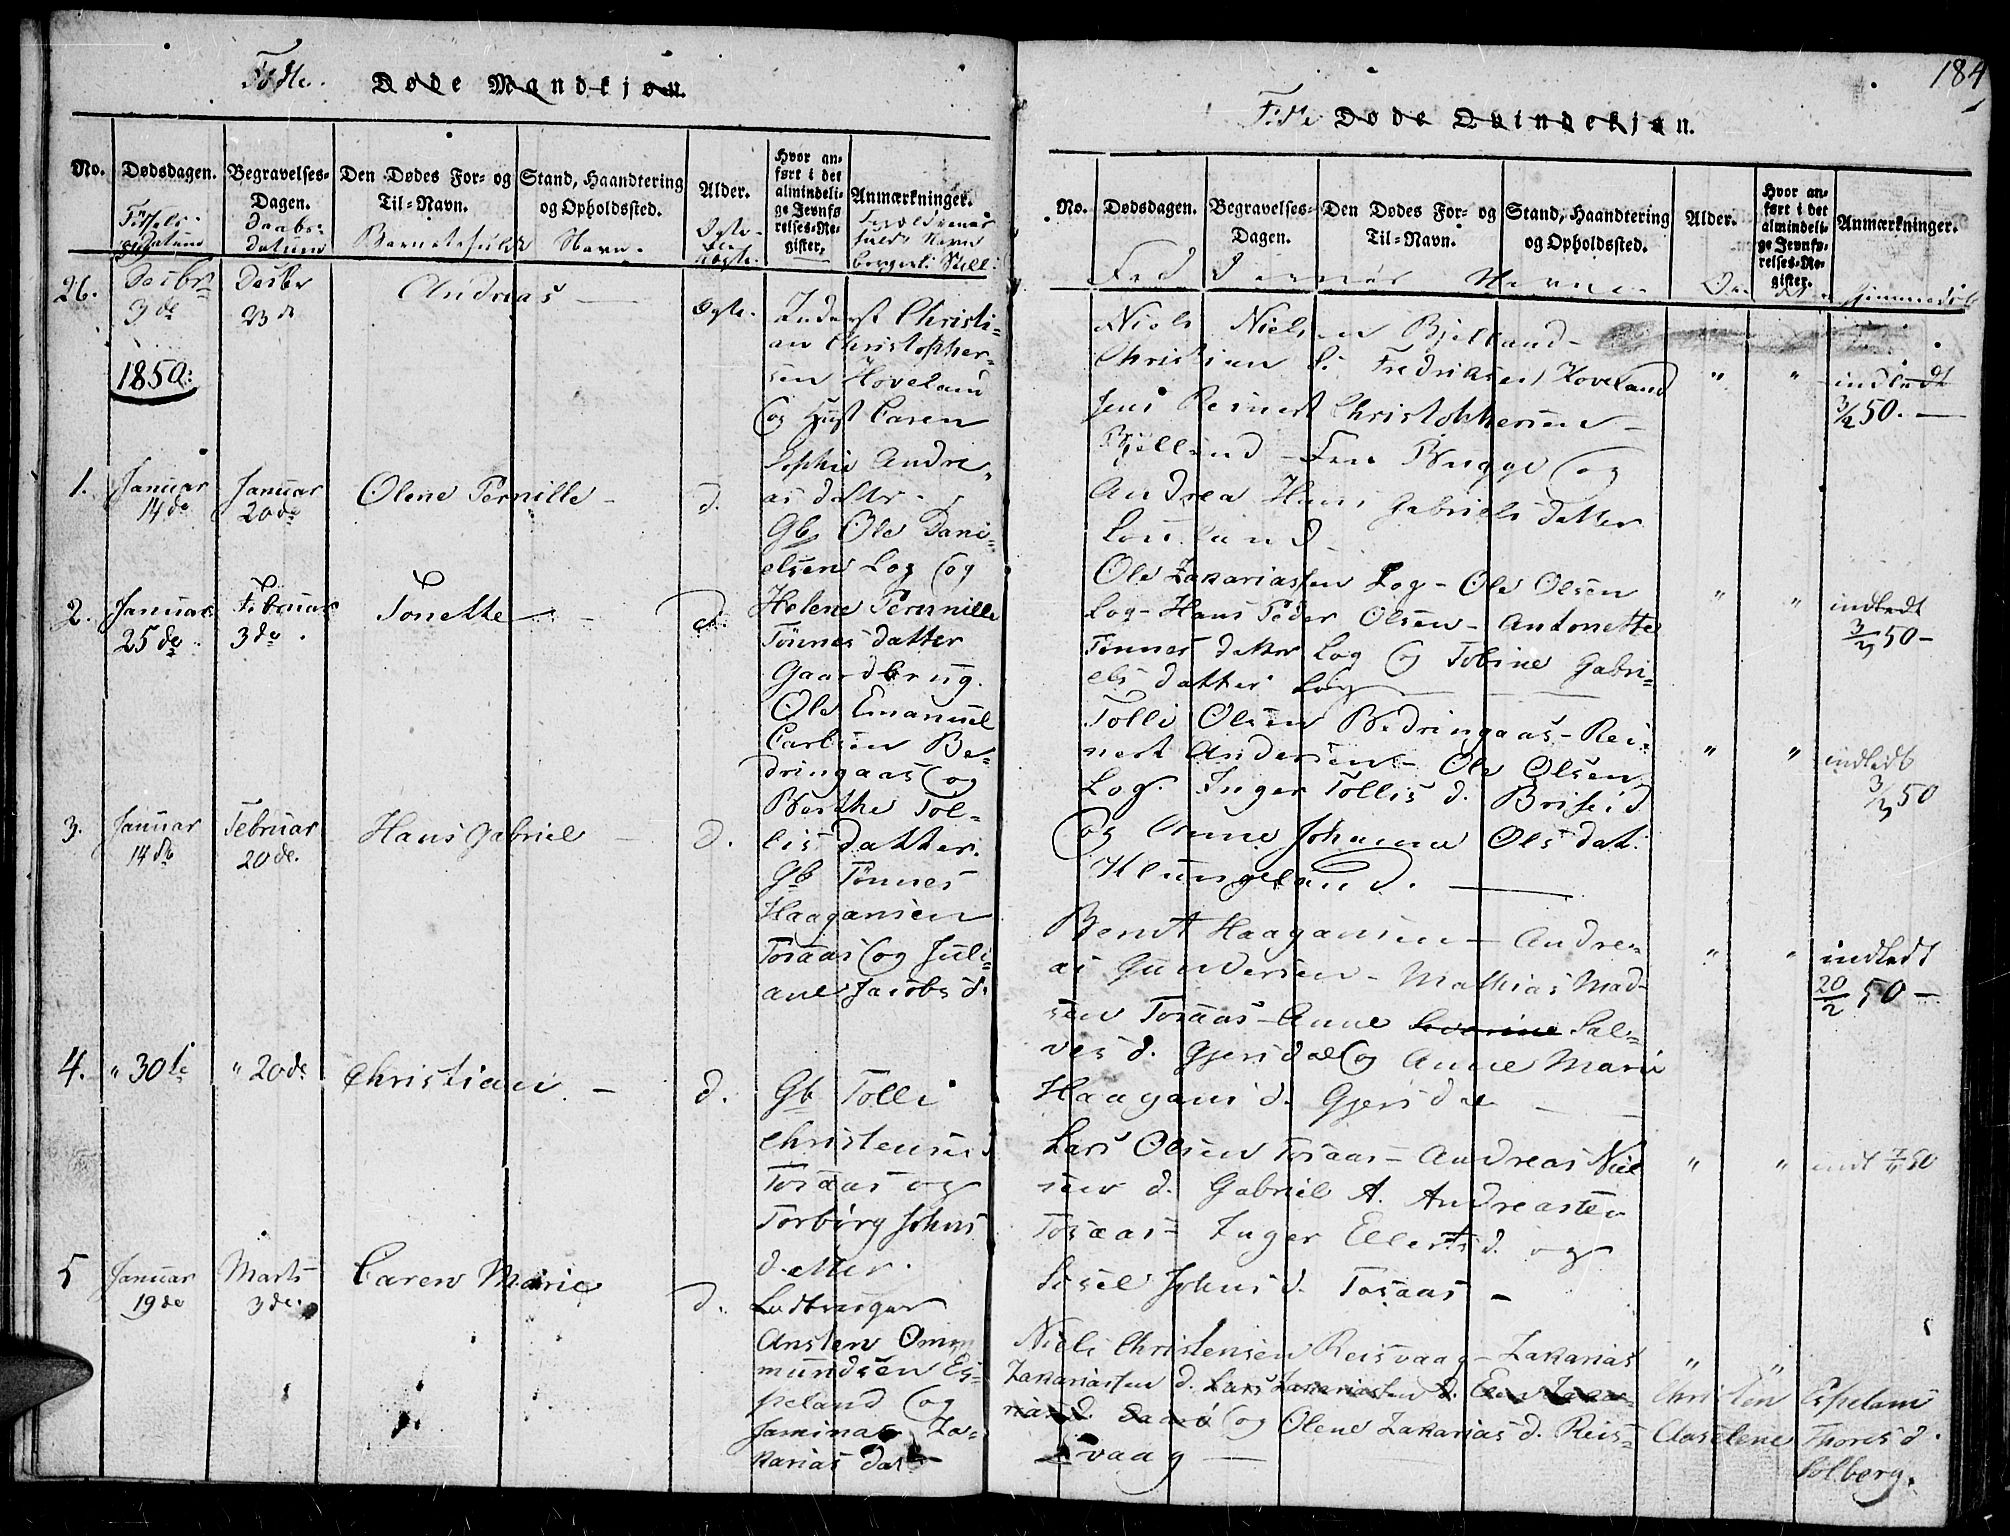 Fødte. Døde Mandkjøn.
No. Dødsdagen. Begravelses-Dagen. Den Dødes For- og Til-Navn. Stand, Haandtering og Opholdssted. Alder. Hvor anført i det almindelige Jevnførelses-Register. Anmærkninger.
Fødsels Datum
Daabs-datum
Barnets fulde Navn.
Ægte eller uægte
Forældrenes fulde Navn borgerl: Still:
26.
Decbr
3de
Decbr
23de
Andreas
Ægte.
Inderst Christi-
an Christopher-
sen Hoveland
og Hust Caren
Sophie Andre-
as datter
1850.
1.
Januar
14de
Januar
20de
Olene Pernille
d.
Gb Ole Dani-
elsen Log og
Helene Pernille
Tönnes datter
2.
Januar
25de
Februar
3de
Tonette
d.
Gaardbrug.
Ole Emanuel
Carlsen Be-
dringaas og
Berthe Tol-
lis datter.
3.
Januar
14de
Februar
20de.
Hans Gabriel
d.
Gb Tönnes
Haagansen
Tosaas og Juli-
ane Jacobs d.
4.
" 30te
" 20de
Christian
d.
Gb Tolli
Christensen
Tosaas og
Torborg Johns
datter.
5
Januar
19de
Marts
3de.
Caren Marie
d.
Ledbruger
Ansten Om-
mundsen Es-
peland og
Jamina Za-
karias dat
184
Fødte Døde Qvindekjøn.
No. Dødsdagen. Begravelses-Dagen. Den Dødes For- og Til-Navn. Stand, Haandtering og Opholdssted. Alder. Hvor anført i det almindelige Jevnførelses-Register. Anmærkninger.
Navne
Niels Nielsen Bjelland-
Christian S. Fredriksen Hoveland
Jens Reinert Christophersen-
Bjelland
og
Andrea Hans Gabriels datter
Louland
" " indledt
3/2 50.
Ole Zakariassen Log- Ole Olsen
Log- Hans Peder Olsen- Antonette
Tönnes datter Log og Tobine Gabri-
els datter Log
" " indledt
3/3 50-
Tolli Olsen Bedringaas- Rei-
nert Andersen- Ole Olsen
Log. Inger Tollis d. Briseid
og Anne Johanne Ols dat.
Klungeland.
" " indledt
3/3 50
Berndt Haagansen- Andre-
as Gundersen- Mathias Mad-
sen Tosaas- Anne Severine Sal-
ves d. Gjersdal og Anne Marie
Haagans d. Gjersdal
" " indledt
20/2 50-
Lars Olsen Tosaas- Andreas Niel
sen d. Gabriel A. Andreasen
Tosaas- Inger Ellerts d. og
Sisel Johns d. Tosaas-
" " indt 50
Niels Christensen Reisvaag- Zakarias
Zakariassen d. Lars Zakariassen d.
og Olene Zakarias d. Reis-
vaag
" "
Christen Espeland
Aaselene Thores d.
Solberg.